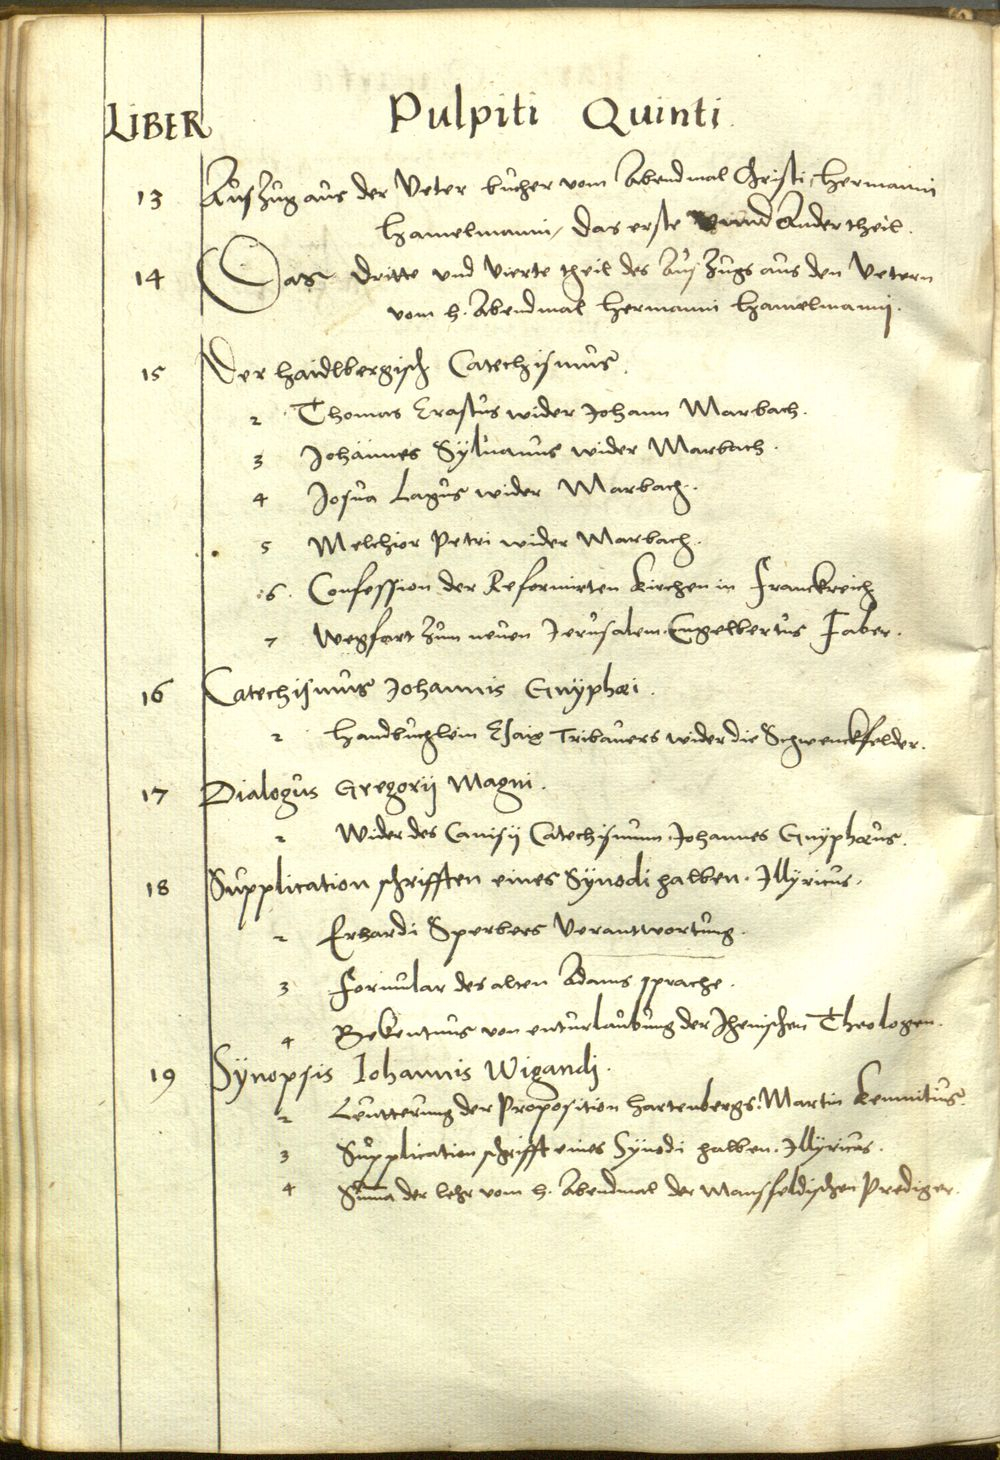 LIBER Pulpiti Quinti.
13 Auszug aus der Veter bucher vom Abendmal Christi, Hermanni
Hamelmanni, das erste vnnd Ander theil.
14 Das dritte vnd Vierte theil des Auszugs aus den Vetern
vom h. Abendmal Hermanni Hamelmanij.
15 Der haidlbergisch Catechismus.
2 Thomas Erastus wider Johann Marbach.
3 Johannes Sÿluanus wider Marbach.
4 Josua Lagus wider Marbach.
5 Melchior Petri wider Marbach.
6. Confession der Reformirten Kirchen in Franckreich
7 Wegfart zum neuen Jerusalem. Engelbertus Faber.
16 Catechismus Johannis Gnÿphæi.
2 Handbuchlein Esaiæ Tribauers wider die Schwenckfelder.
17 Dialogus Gregorij Magni.
2 Wider des Canisij Catechismum. Johannes Gnÿphæus.
18 Supplication schrifften eines Sÿnodi halben. Illÿricus.
2 Erhardi Sperbers Verantwortung.
3 Formular des alten Adams sprache.
4 Bekentnus von enturlaubung der Jhenischen Theologen.
19 Sÿnopsis Iohannis Wigandj.
2 Leutterung der Proposition Hartenbergs. Martin Kemnitius.
3 Supplication schrifft eines Sÿnodi halben. Illÿricus.
4 Suma der lehr vom h. Abendmal der Mansfeldischen Prediger.